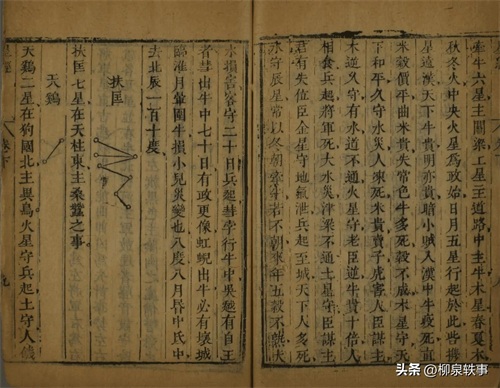 牽牛六星主關梁工主道路中主牛木星春夏木
秋冬火中央火星為政始日月五星行起於此皆揆
星遠漢天下牛貴明亦貴暗小賊入漢中牛疫死直
米穀價平曲米貴失常色牛多死穀不成木星守天
下和平久守水災人凍死米貴賣子虎害人臣謀主
木逆久守有水道不通火星守老臣逆牛貴十倍人
相食兵起將軍死大水災津梁不通土守臣謀主
君有失位臣金星守地氣泄兵起五城天下人多死
水守辰星常以冬朝牽牛若不朝來年五穀不熟伏
水損害客守二十日兵起彗孛行牛中吳越有自王
者彗出牛中七十日有政更像虹蜺出牛必有壞城
臨淮月暈圍牛損小兒災變也八度八月昏中氐中
去北辰一百十度
扶匡
扶匡七星在天柱東主桑蠶之事
天鷄
天鷄二星在狗國北主異鳥火星守兵起土守人饑
卷下
九
头条 @柳泉轶事